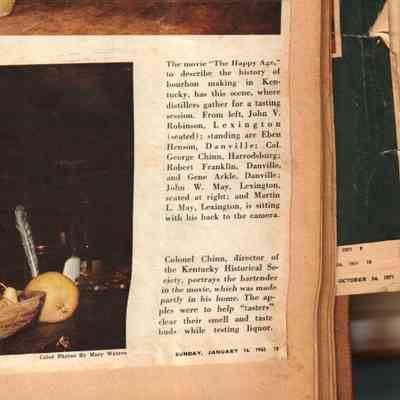 The movie "The Happy Age,"
to describe the history of
bourbon making in Ken-
tucky, has this scene, where
distillers gather for a tasting
session. From left, John V.
Robinson, Lexington
(seated); standing are Eben
Henson, Danville; Col.
George Chinn, Harrodsburg;
Robert Franklin, Danville,
and Gene Arkle, Danville;
John W. May, Lexington,
seated at right; and Martin
L. May, Lexington, is sitting
with his back to the camera.
Colonel Chinn, director of
the Kentucky Historical So-
ciety, portrays the bartender
in the movie, which was made
partly in his home. The ap-
ples were to help "tasters"
clear their smell and taste
buds while testing liquor.
Color Photos By Mary Walters
SUNDAY, JANUARY 14, 1962
OCTOBER 24, 1971